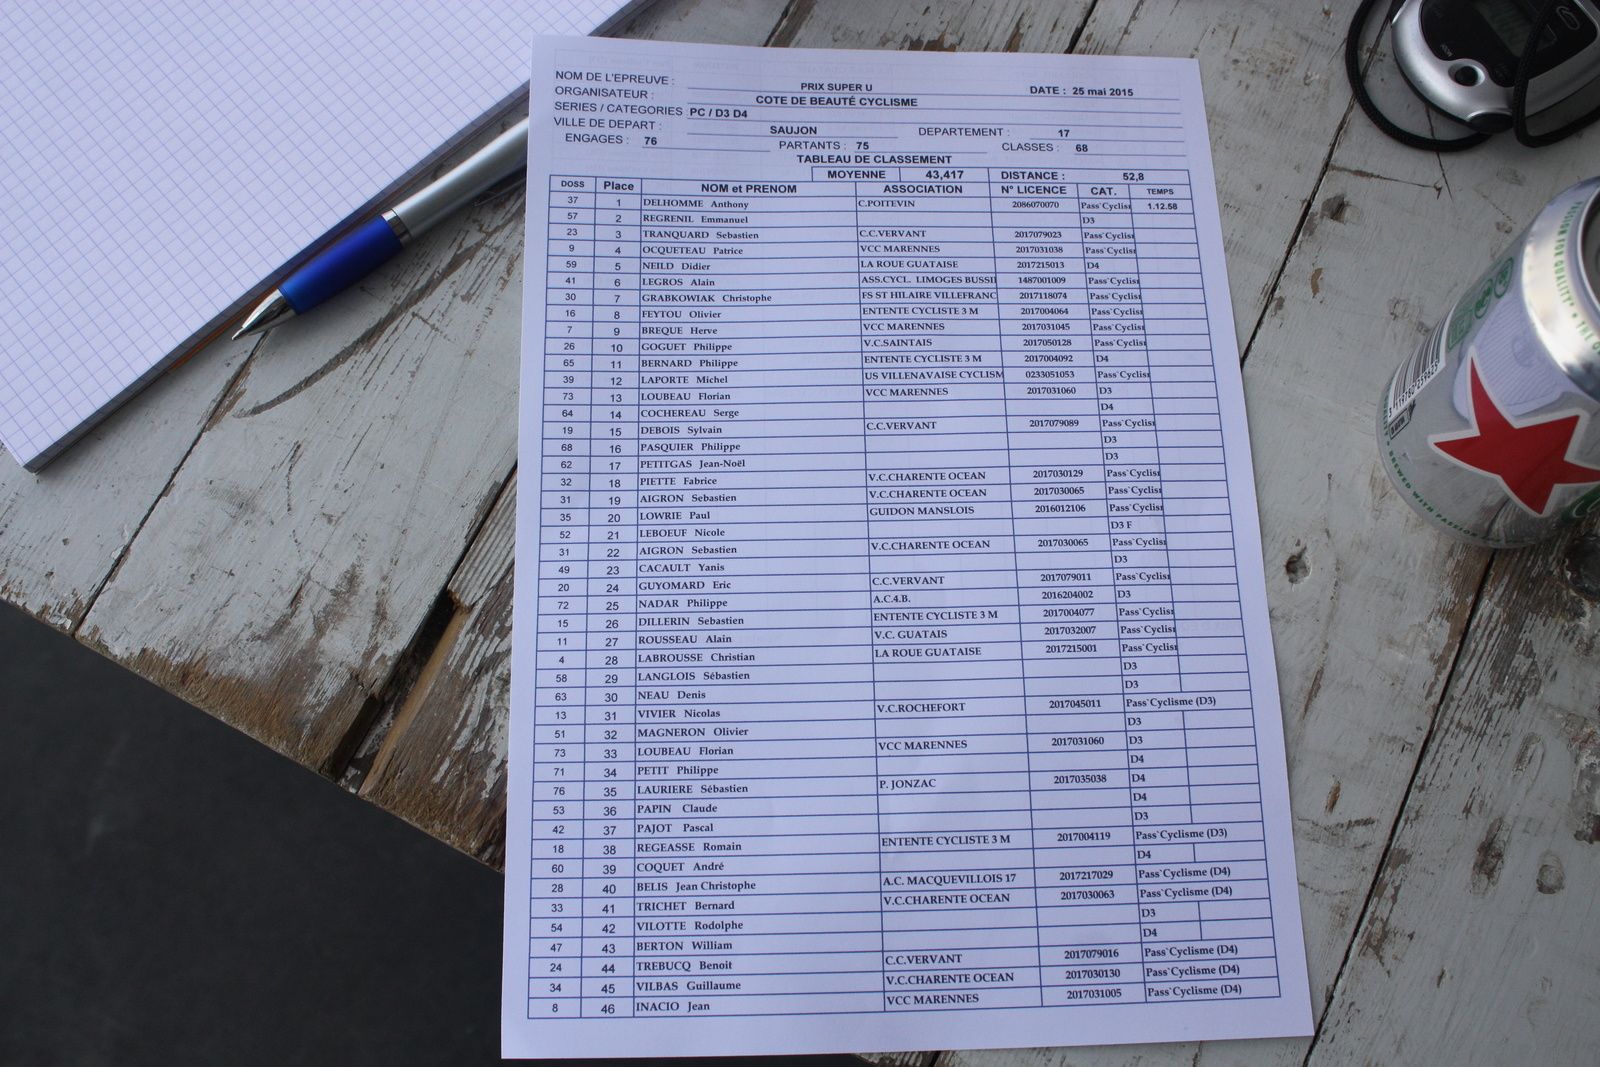 NOM DE L'EPREUVE : PRIX SUPER U DATE : 25 mai 2015
ORGANISATEUR : COTE DE BEAUTÉ CYCLISME
SERIES / CATEGORIES PC / D3 D4
VILLE DE DEPART : SAUJON DEPARTEMENT : 17
ENGAGES : 76 PARTANTS : 75 CLASSES : 68
TABLEAU DE CLASSEMENT
MOYENNE 43,417 DISTANCE : 52,8
DOSS Place NOM et PRENOM ASSOCIATION N° LICENCE CAT. TEMPS
37 1 DELHOMME Anthony C.POITEVIN 2086070070 Pass`Cyclisı 1.12.58
57 2 REGRENIL Emmanuel D3
23 3 TRANQUARD Sebastien C.C.VERVANT 2017079023 Pass`Cyclisı
9 4 OCQUETEAU Patrice VCC MARENNES 2017031038 Pass`Cyclisı
59 5 NEILD Didier LA ROUE GUATAISE 2017215013 D4
41 6 LEGROS Alain ASS.CYCL. LIMOGES BUSSII 1487001009 Pass`Cyclisı
30 7 GRABKOWIAK Christophe FS ST HILAIRE VILLEFRANC 2017118074 Pass`Cyclisı
16 8 FEYTOU Olivier ENTENTE CYCLISTE 3 M 2017004064 Pass`Cyclisı
7 9 BREQUE Herve VCC MARENNES 2017031045 Pass`Cyclisı
26 10 GOGUET Philippe V.C.SAINTAIS 2017050128 Pass`Cyclisı
65 11 BERNARD Philippe ENTENTE CYCLISTE 3 M 2017004092 D4
39 12 LAPORTE Michel US VILLENAVAISE CYCLISM 0233051053 Pass`Cyclisı
73 13 LOUBEAU Florian VCC MARENNES 2017031060 D3
64 14 COCHEREAU Serge D4
19 15 DEBOIS Sylvain C.C.VERVANT 2017079089 Pass`Cyclisı
68 16 PASQUIER Philippe D3
62 17 PETITGAS Jean-Noël D3
32 18 PIETTE Fabrice V.C.CHARENTE OCEAN 2017030129 Pass`Cyclisı
31 19 AIGRON Sebastien V.C.CHARENTE OCEAN 2017030065 Pass`Cyclisı
35 20 LOWRIE Paul GUIDON MANSLOIS 2016012106 Pass`Cyclisı
52 21 LEBOEUF Nicole D3 F
31 22 AIGRON Sebastien V.C.CHARENTE OCEAN 2017030065 Pass`Cyclisı
49 23 CACAULT Yanis D3
20 24 GUYOMARD Eric C.C.VERVANT 2017079011 Pass`Cyclisı
72 25 NADAR Philippe A.C.4.B. 2016204002 D3
15 26 DILLERIN Sebastien ENTENTE CYCLISTE 3 M 2017004077 Pass`Cyclisı
11 27 ROUSSEAU Alain V.C. GUATAIS 2017032007 Pass`Cyclisı
4 28 LABROUSSE Christian LA ROUE GUATAISE 2017215001 Pass`Cyclisı
58 29 LANGLOIS Sébastien D3
63 30 NEAU Denis D3
13 31 VIVIER Nicolas V.C.ROCHEFORT 2017045011 Pass`Cyclisme (D3)
51 32 MAGNERON Olivier D3
73 33 LOUBEAU Florian VCC MARENNES 2017031060 D3
71 34 PETIT Philippe D4
76 35 LAURIERE Sébastien P. JONZAC 2017035038 D4
53 36 PAPIN Claude D4
42 37 PAJOT Pascal D3
18 38 REGEASSE Romain ENTENTE CYCLISTE 3 M 2017004119 Pass`Cyclisme (D3)
60 39 COQUET André D4
28 40 BELIS Jean Christophe A.C. MACQUEVILLOIS 17 2017217029 Pass`Cyclisme (D4)
33 41 TRICHET Bernard V.C.CHARENTE OCEAN 2017030063 Pass`Cyclisme (D4)
54 42 VILOTTE Rodolphe D3
47 43 BERTON William D4
24 44 TREBUCQ Benoit C.C.VERVANT 2017079016 Pass`Cyclisme (D4)
34 45 VILBAS Guillaume V.C.CHARENTE OCEAN 2017030130 Pass`Cyclisme (D4)
8 46 INACIO Jean VCC MARENNES 2017031005 Pass`Cyclisme (D4)
PASSION FOR QUALITY • THE
BREWED WITH PASSION